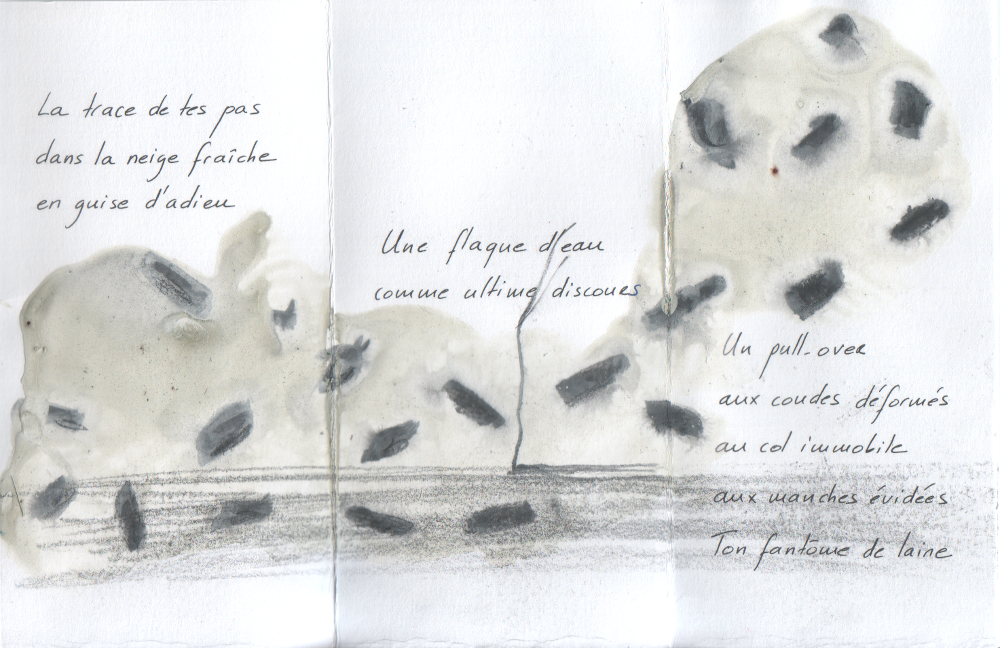 La trace de tes pas
dans la neige fraîche
en guise d'adieu
Une flaque d'eau
comme ultime discours
Un pull-over
aux coudes déformés
au col immobile
aux manches évidées
Ton fantôme de laine